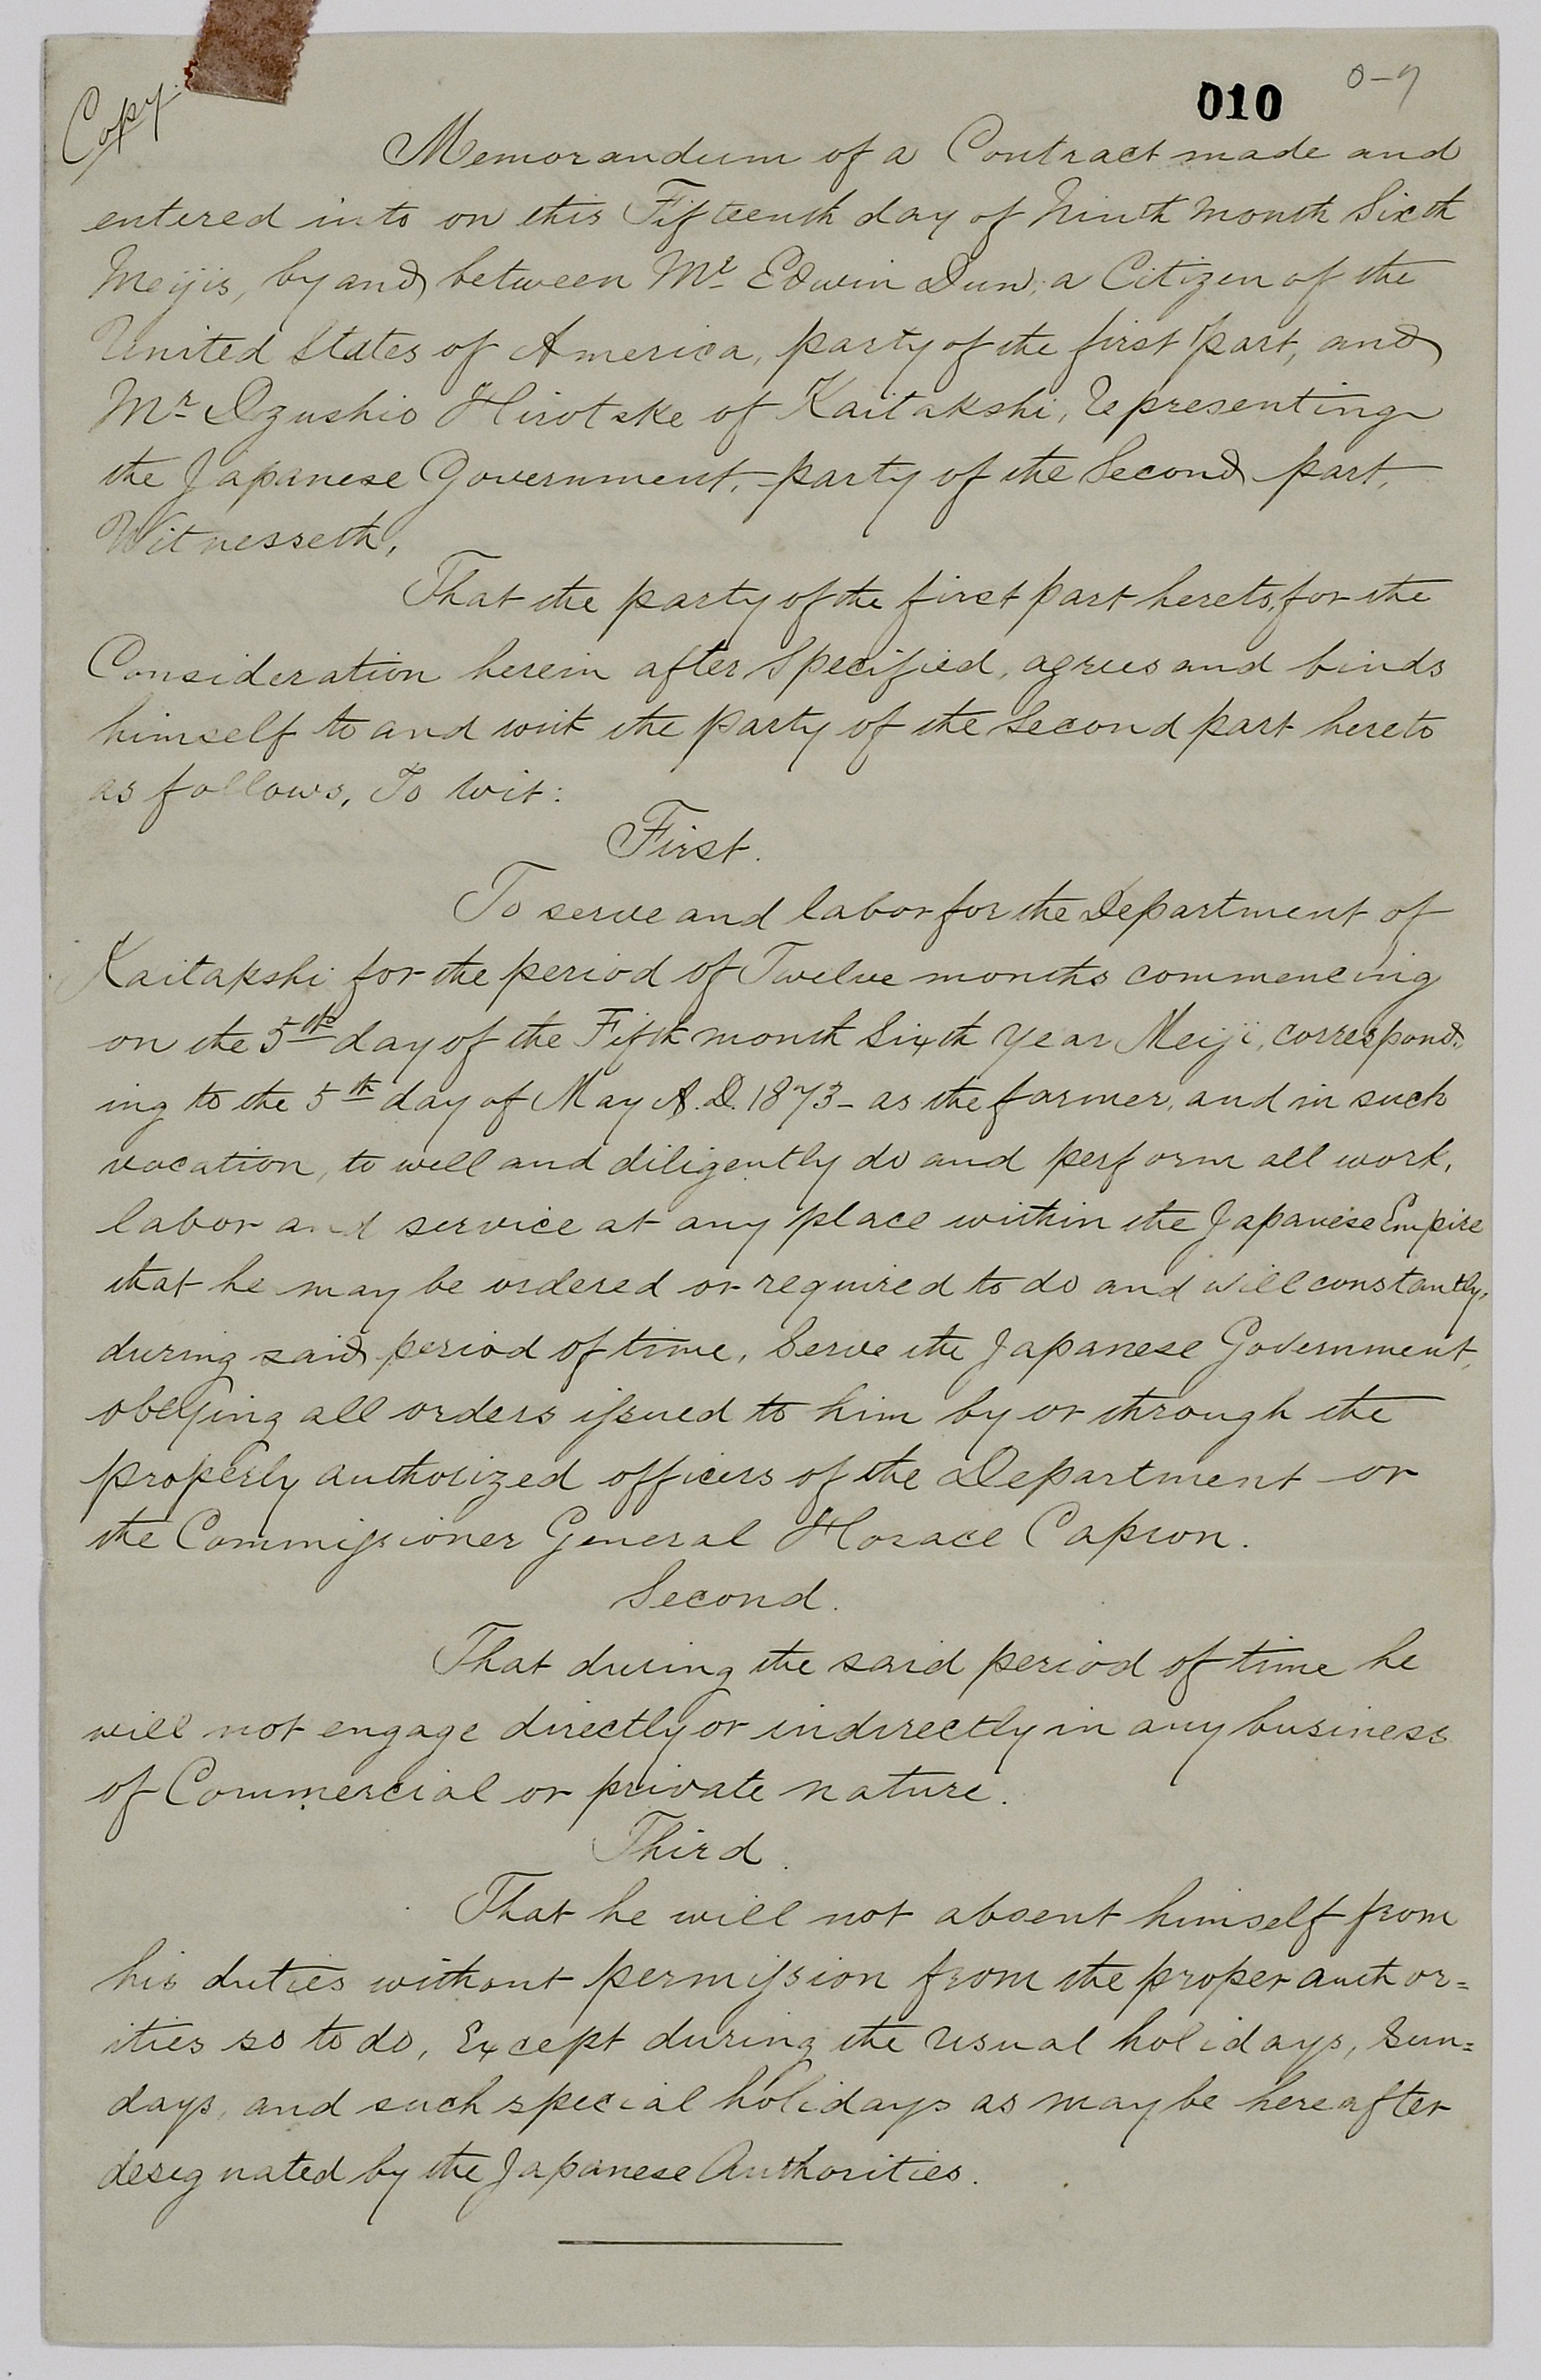 Copy.
010
0-9
Memorandum of a Contract made and
entered into on this Fifteenth day of Ninth month Sixth
Meijis, by and between Mr Edwin Dun, a Citizen of the
United States of America, party of the first part, and
Mr Dzushio Hirotske of Kaitakshi, representing
the Japanese Government, party of the Second part,
Witnesseth,
That the party of the first part hereto, for the
Consideration herein after Specified, agrees and binds
himself to and wit the party of the Second part hereto
as follows, To wit:
First.
To serve and labor for the Department of
Kaitakshi for the period of Twelve months commencing
on the 5th day of the Fifth month Sixth Year Meiji, correspond-
ing to the 5th day of May A.D. 1873 - as the farmer, and in such
vocation, to well and diligently do and perform all work,
labor and service at any place within the Japanese Empire
that he may be ordered or required to do and will constantly,
during said period of time, Serve the Japanese Government,
obeying all orders issued to him by or through the
properly authorized officers of the Department or
the Commissioner General Horace Capron.
Second.
That during the said period of time he
will not engage directly or indirectly in any business
of Commercial or private nature.
Third.
That he will not absent himself from
his duties without permission from the proper author=
ities so to do, Except during the usual holidays, Sun=
days, and such special holidays as may be hereafter
designated by the Japanese Authorities.